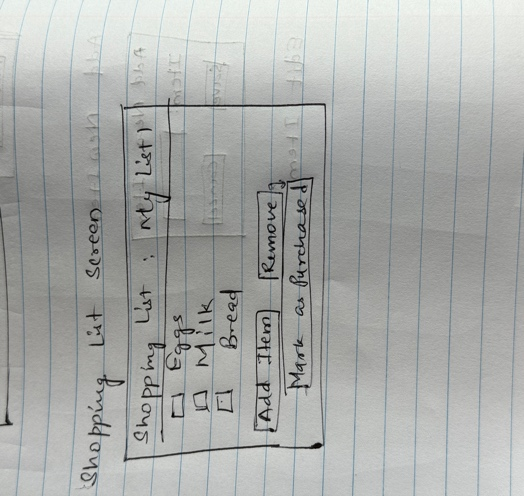 Shopping List Screen
Shopping List : My List 1
Eggs
Milk
Bread
Add Item Remove
Mark as Purchased